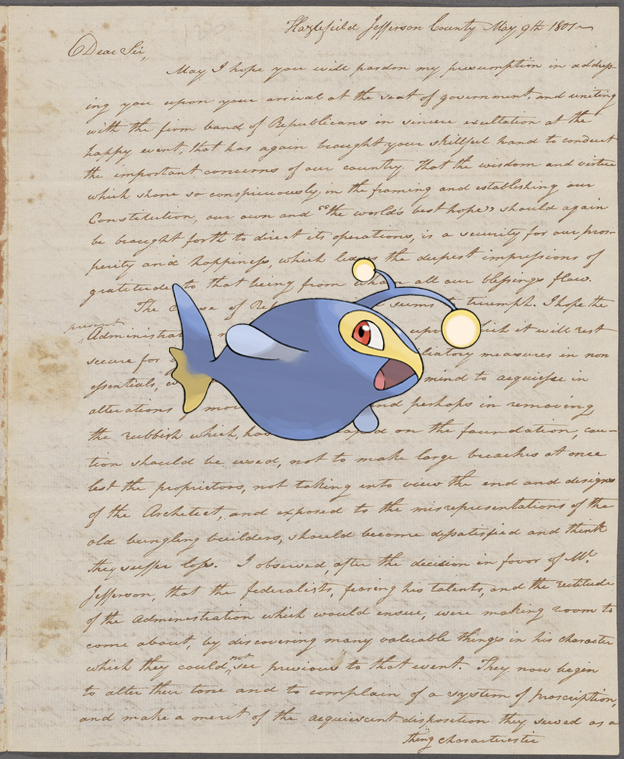 Hazlefield Jefferson County May 9th 1801
Dear Sir,
May I hope you will pardon my presumption in address-
ing you upon your arrival at the seat of government, and uniting
with the firm band of Republicans in sincere exultation at the
happy event, that has again brought your skillful hand to conduct
the important concerns of our country. That the wisdom and virtue
which shone so conspicuously, in the framing and establishing our
Constitution, our own and "the world's best hope" should again
be brought forth to direct its operations, is a security for our pros-
perity and happiness, which the deepest impressions of
gratitude to that being from all our blessings flow.
The of seems to triumph. I hope the
present
upon which it will rest
secure for measures in non
essentials, mind to acquiesce in
alterations and perhaps in removing
the rubbish which, on the foundation, cau-
tion should be used, not to make large breaches at once
lest the proprietors, not taking into view the end and designs
of the Architect, and exposed to the misrepresentations of the
old bungling builders, should become dissatisfied and think
they suffer loss. I observed, after the decision in favor of Mr
Jefferson, that the federalists, fearing his talents, and the rectitude
of the administration which would ensue, were making room to
come about, by discovering many valuable things in his character
which they could not see previous to that event. They now begin
to alter their tone and to complain of a system of proscription,
and make a merit of the acquiescent disposition they shewed as a
thing characteristic